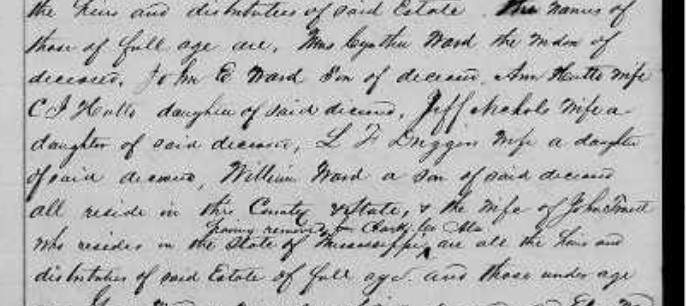 the heirs and distributies of said Estate. The names of
those of full age are, Mrs Cynthia Ward the widow of
deceased, John E Ward Son of deceased, Ann Hutto wife
C J Hutto daughter of said deceased, Jeff Nichols wife a
daughter of said deceased, L F Driggers wife a daughter
of said deceased, William Ward a son of said deceased
all reside in this County & State, & the wife of John
having removed to Ala
who resides in the State of Mississippi, are all the heirs and
distributies of said Estate of full age. and those under age